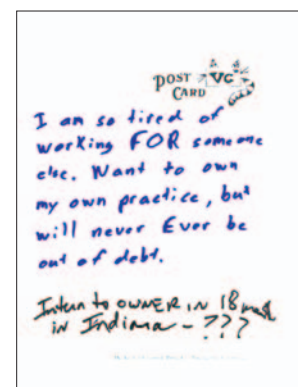 POST VG
CARD
I am so tired of
working FOR someone
else. Want to own
my own practice, but
will never Ever be
out of debt.
Intern to OWNER IN 18
in Indiana - ???